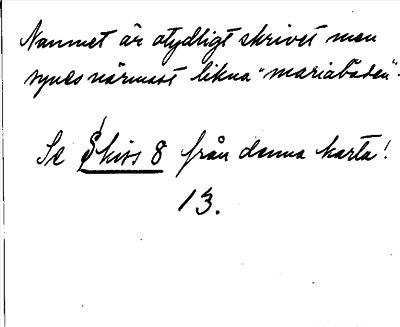 Namnet är otydligt skrivet men
synes närmast likna "mariabaden".
Se Skiss 8 från denna karta!
13.